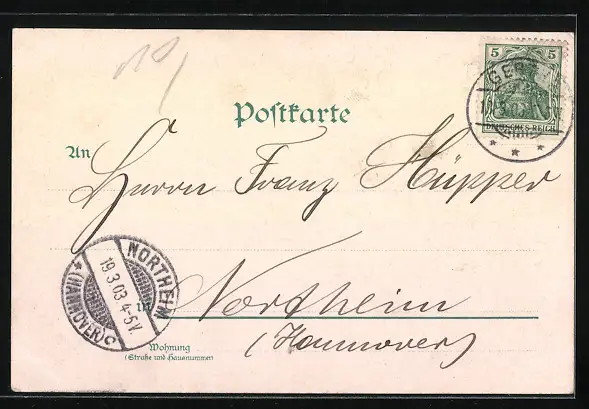 5 5
DEUTSCHES REICH
GER
Postkarte
An
Herrn Franz Hüpper
NORTHEIM
19.3.03 4-5V.
* (HANNOVER) c
in Northeim
(Hannover)
Wohnung
(Straße und Hausnummer)